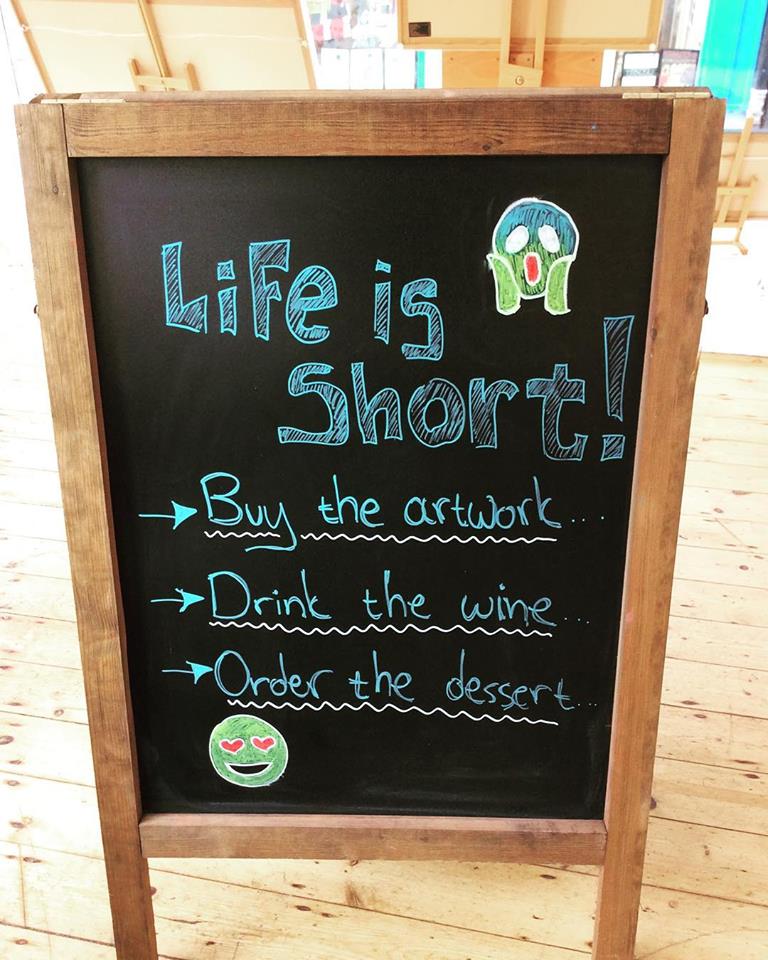 Life is
Short!
Buy the artwork...
Drink the wine...
Order the dessert...